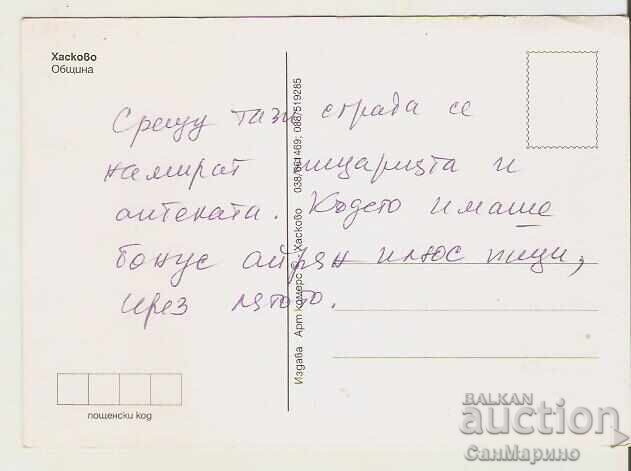 Хасково
Община
Срещу тази сграда се
намират пицарията и
аптеката. Където имаше
бонус айрян плюс пици,
през лятото.
Издава Арт комерс - Хасково 038/661469; 0887519285
пощенски код
BALKAN
auction
СанМарино